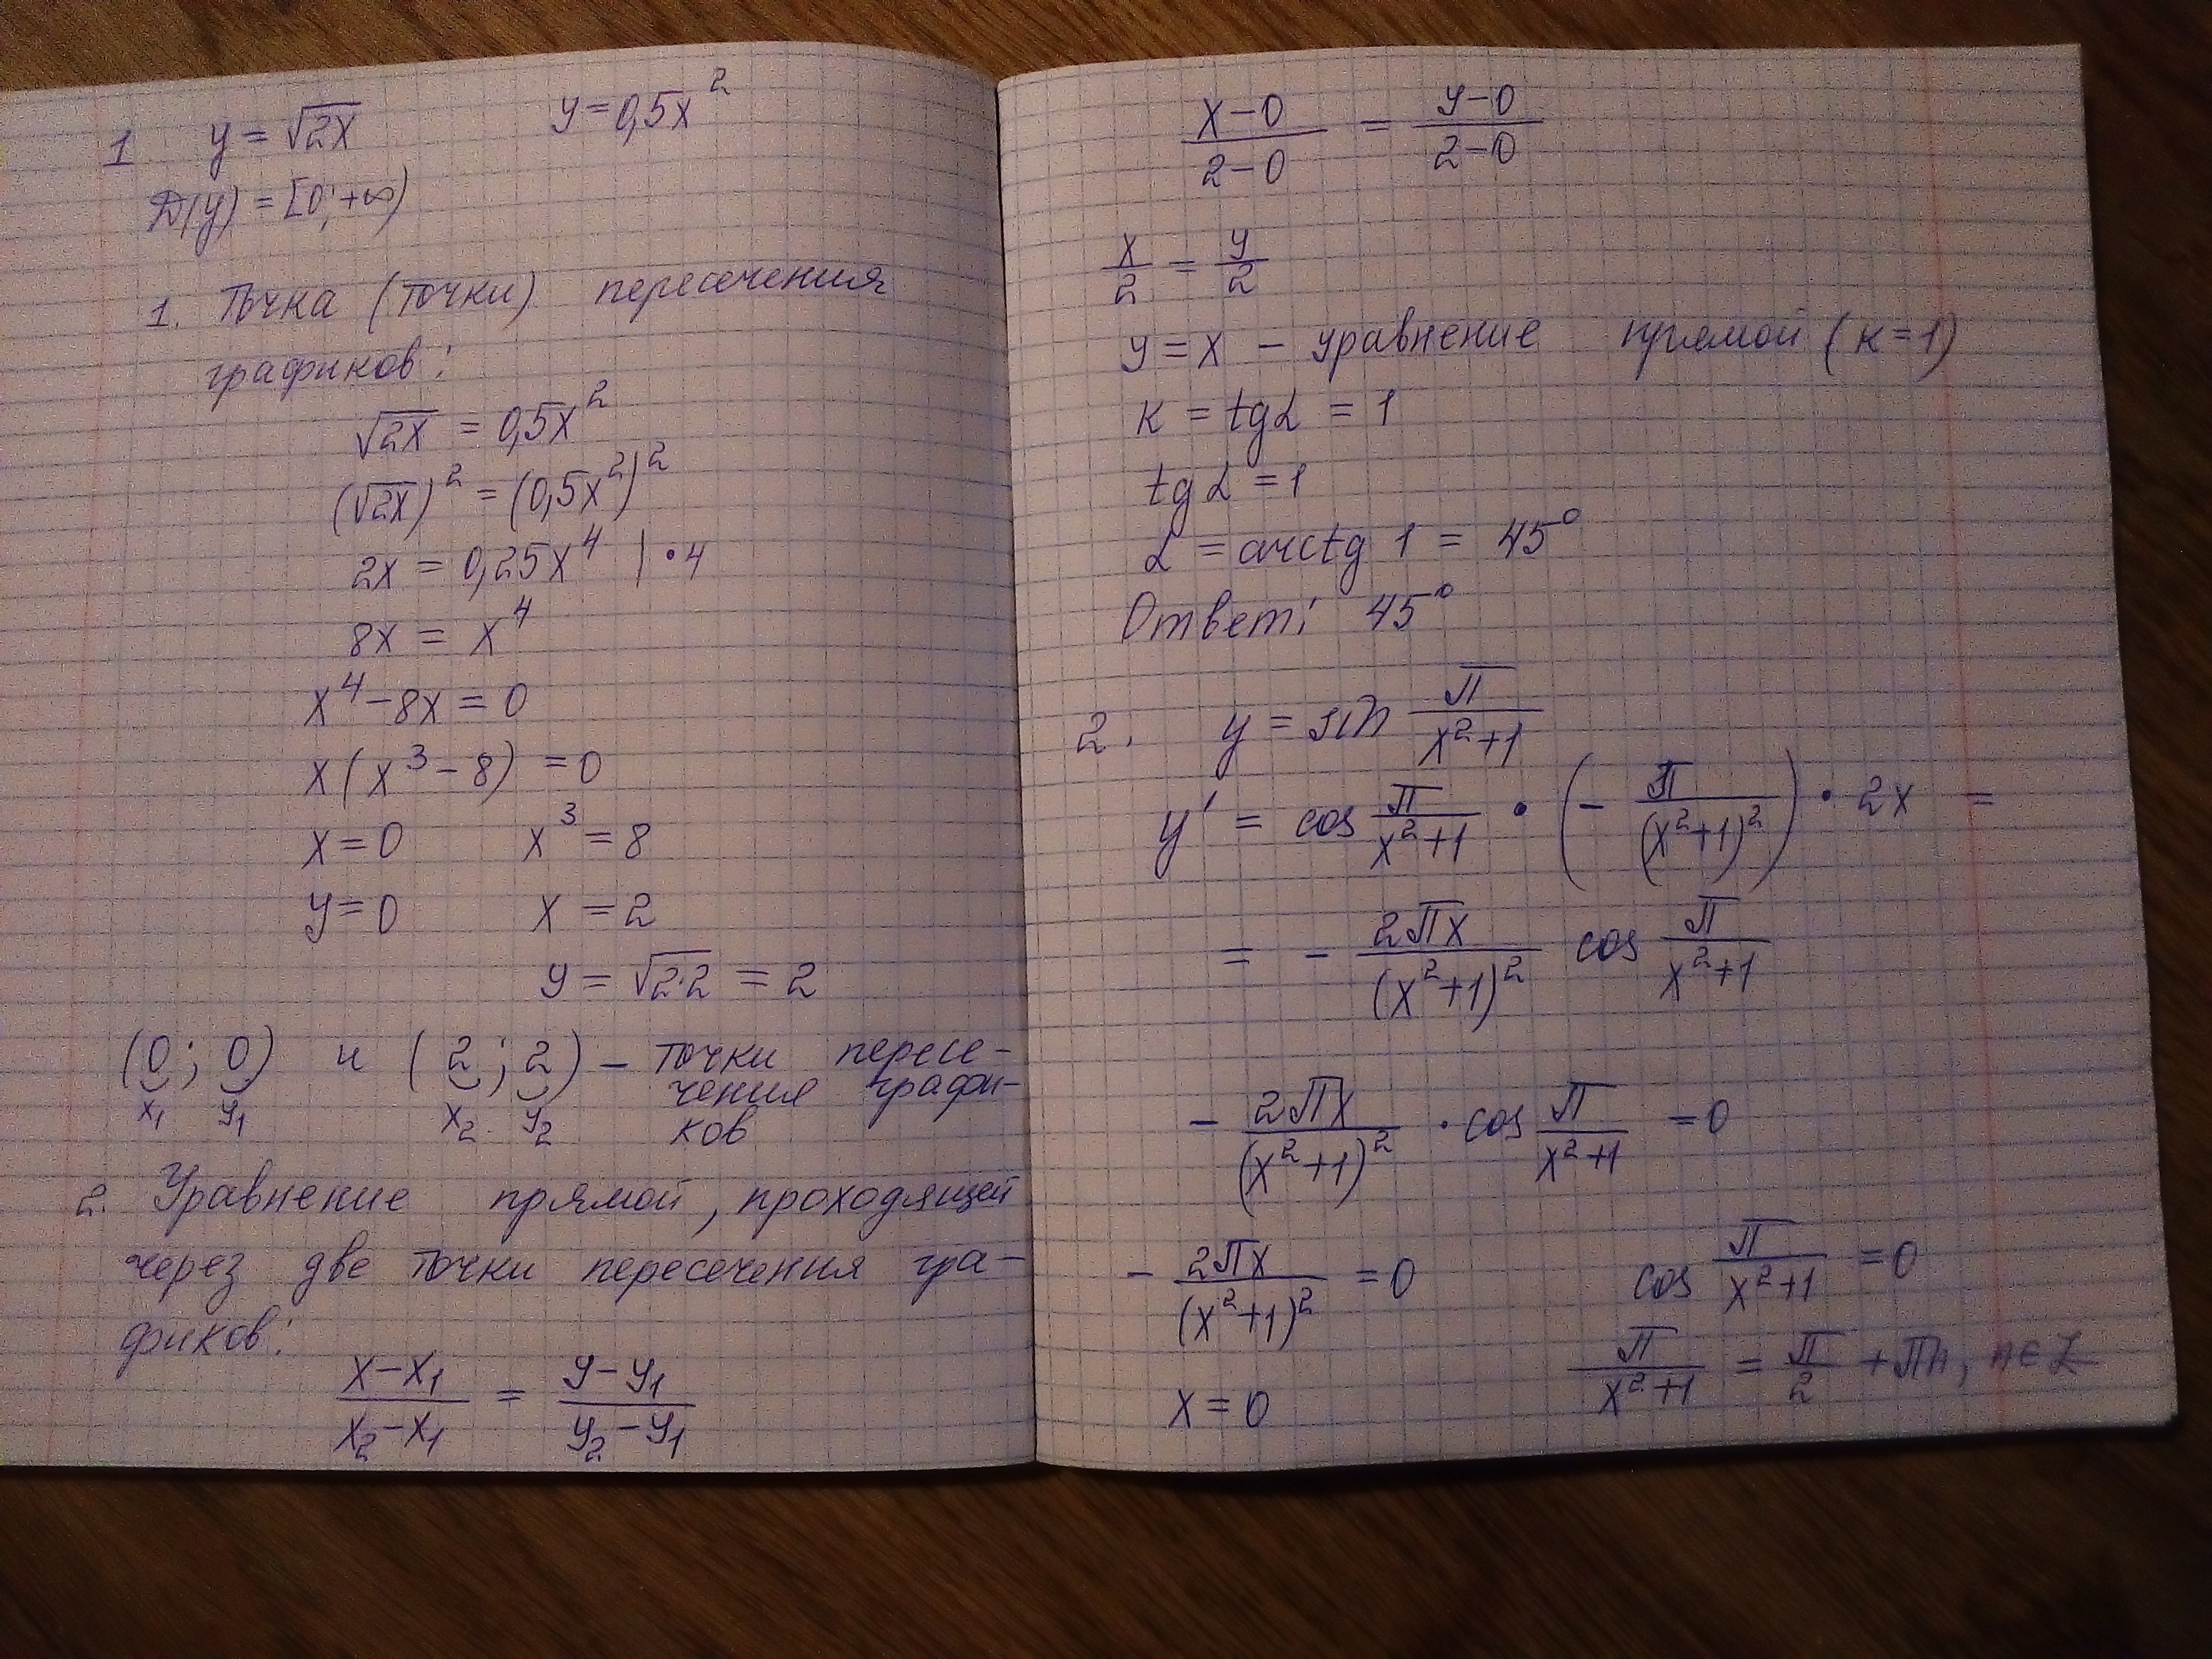 1 y = √2x y = 0,5x²
D(y) = [0; +∞)
1. Точка (точки) пересечения
графиков:
√2x = 0,5x²
(√2x)² = (0,5x²)²
2x = 0,25x⁴ | • 4
8x = x⁴
x⁴ – 8x = 0
x(x³ – 8) = 0
x = 0 x³ = 8
y = 0 x = 2
y = √2·2 = 2
(0; 0) и (2; 2) – точки пересе-
чения графи-
x₁ y₁ x₂ y₂ ков
2. Уравнение прямой, проходящей
через две точки пересечения гра-
фиков:
(x – x₁)/(x₂ – x₁) = (y – y₁)/(y₂ – y₁)
(x – 0)/(2 – 0) = (y – 0)/(2 – 0)
x/2 = y/2
y = x – уравнение прямой (к = 1)
к = tg α = 1
tg α = 1
α = arctg 1 = 45°
Ответ: 45°
2. y = sin π/(x² + 1)
y' = cos π/(x² + 1) • (– π/(x² + 1)²) • 2x =
= – 2πx/(x² + 1)² cos π/(x² + 1)
– 2πx/(x² + 1)² • cos π/(x² + 1) = 0
– 2πx/(x² + 1)² = 0 cos π/(x² + 1) = 0
x = 0 π/(x² + 1) = π/2 + πn, n ∈ Z